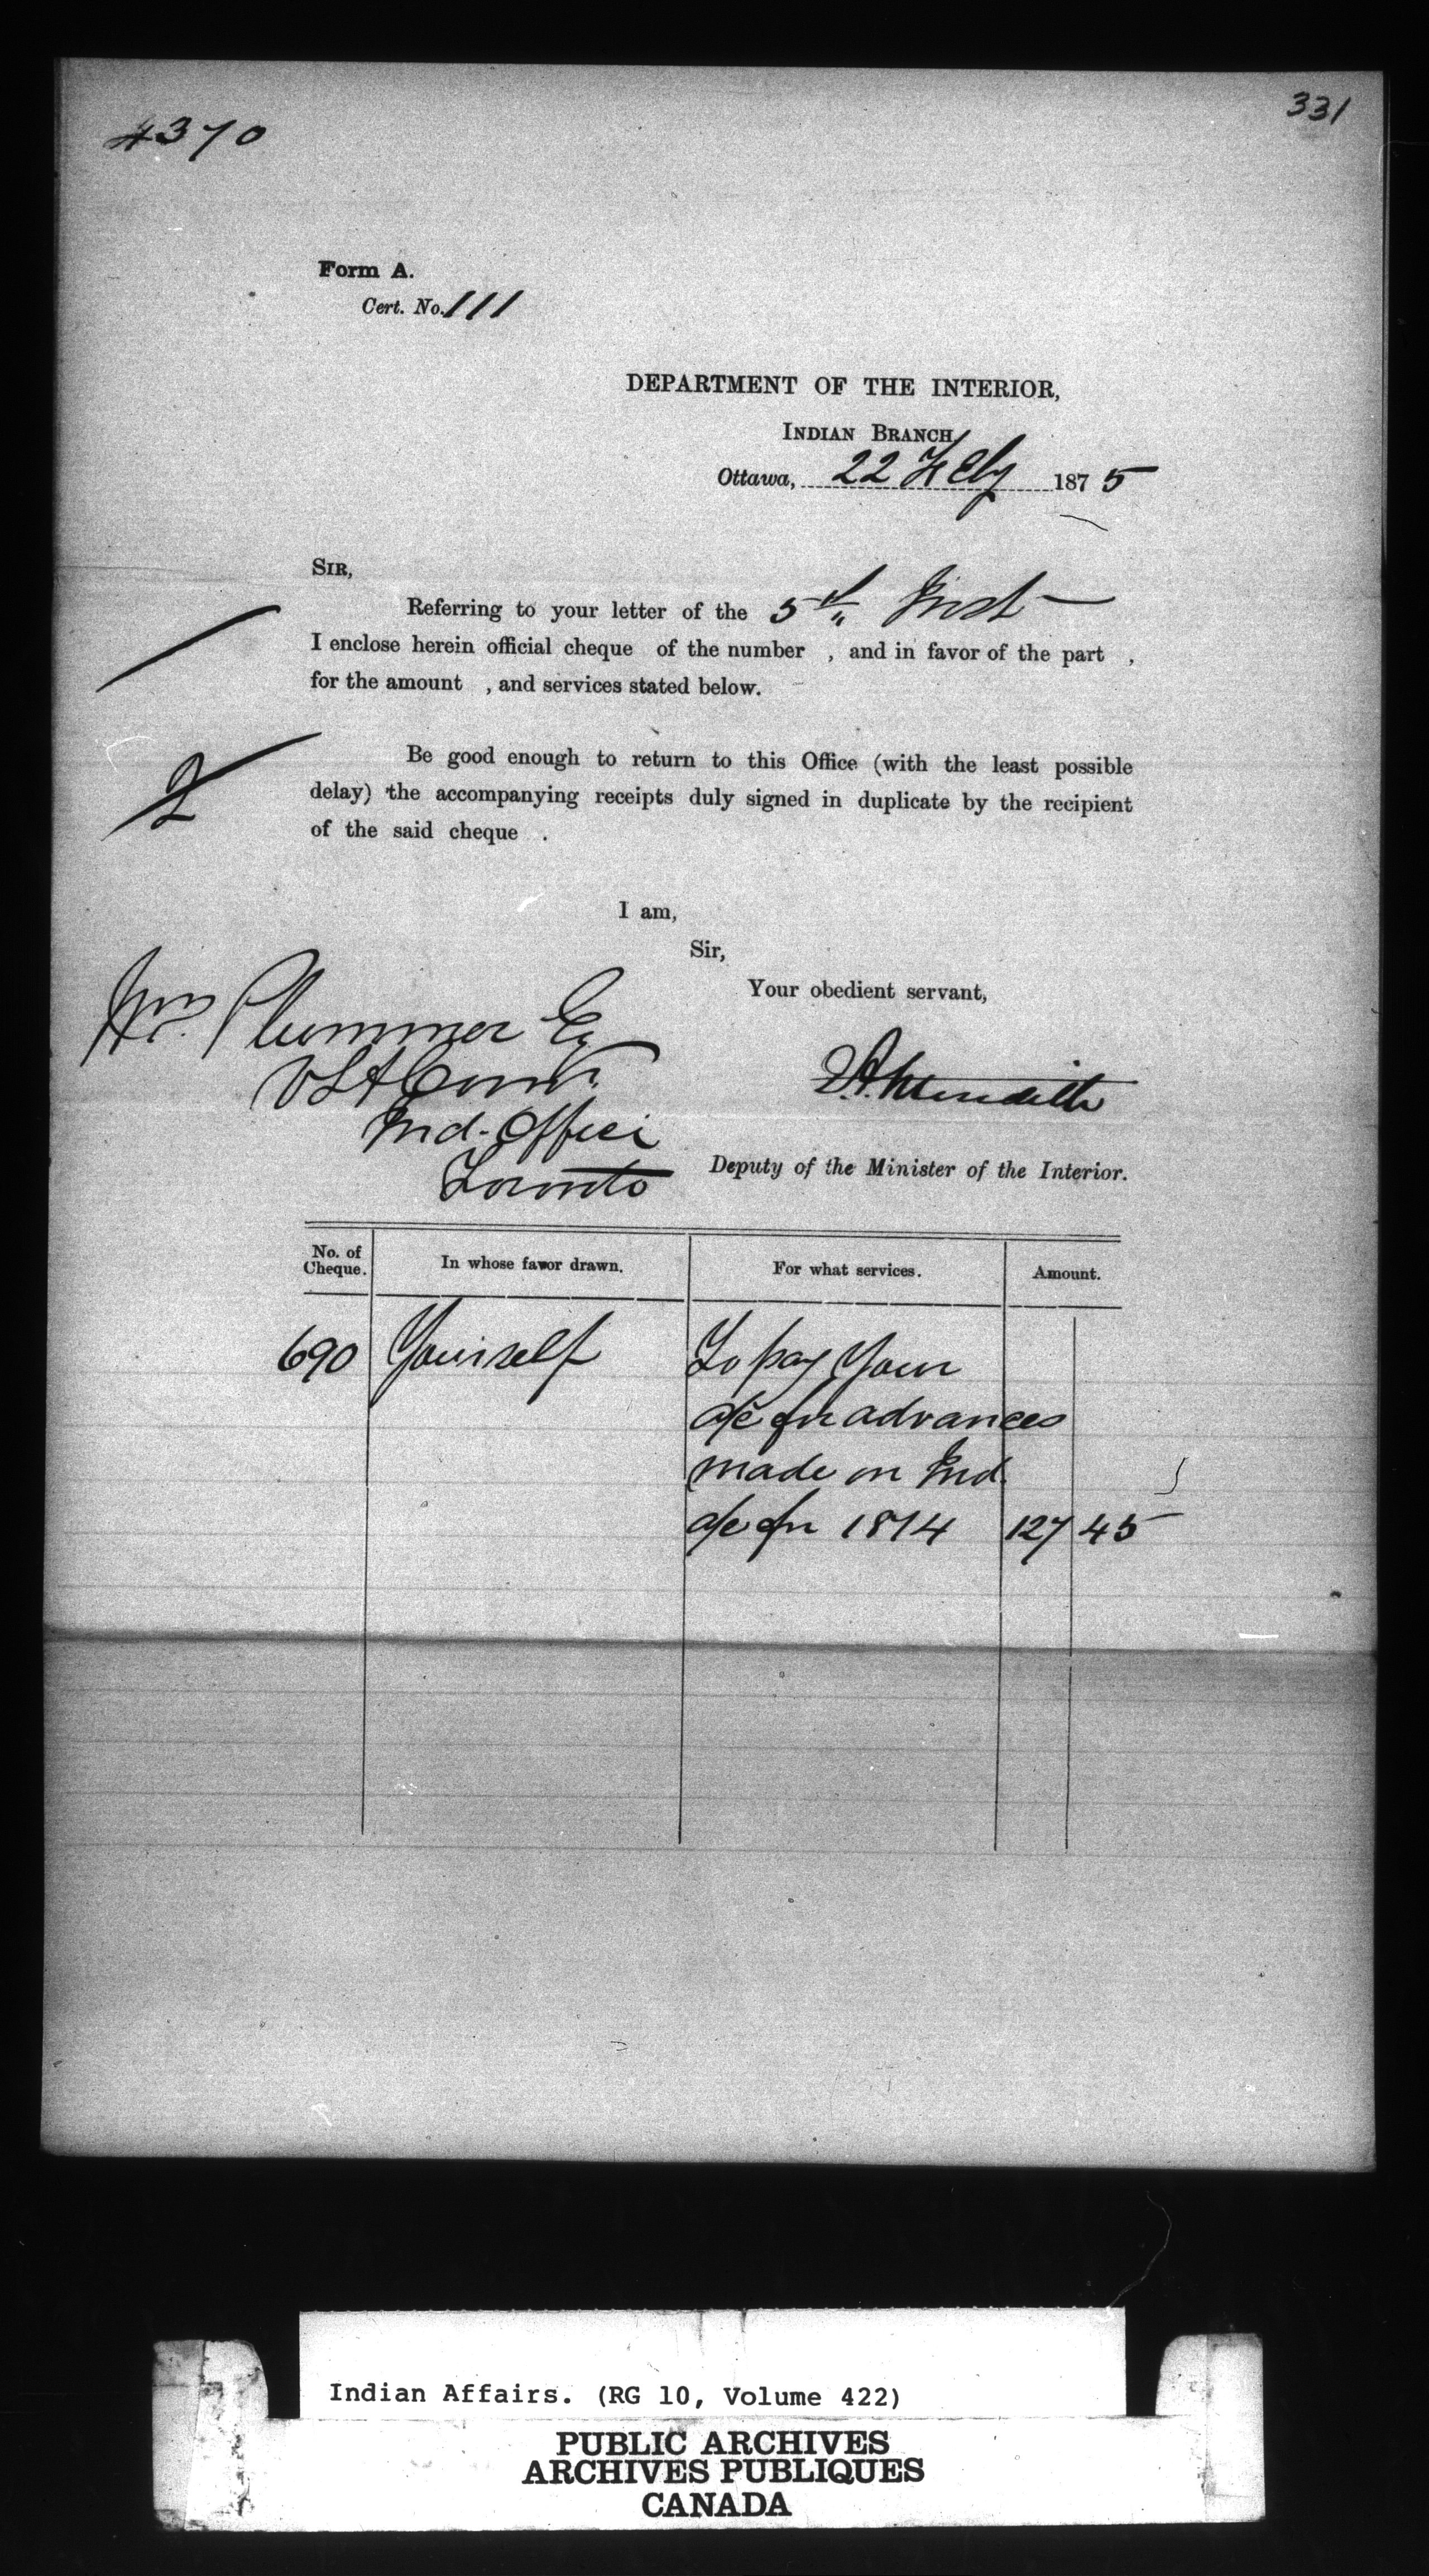 4370
331
Form A.
Cert. No. 111
DEPARTMENT OF THE INTERIOR,
INDIAN BRANCH,
Ottawa, 22 Feby 1875
SIR,
Referring to your letter of the 5th Inst
I enclose herein official cheque of the number , and in favor of the part ,
for the amount , and services stated below.
2
Be good enough to return to this Office (with the least possible
delay) the accompanying receipts duly signed in duplicate by the recipient
of the said cheque .
I am,
Sir,
Your obedient servant,
Wm. Plummer Esq
VSL&Comr.
Ind. Office
Toronto
E.A. Meredith
Deputy of the Minister of the Interior.
No. of Cheque. In whose favor drawn. For what services. Amount.
690 Yourself To pay Your
a/c for advances
made on Ind.
a/c for 1874 127 45
Indian Affairs. (RG 10, Volume 422)
PUBLIC ARCHIVES
ARCHIVES PUBLIQUES
CANADA